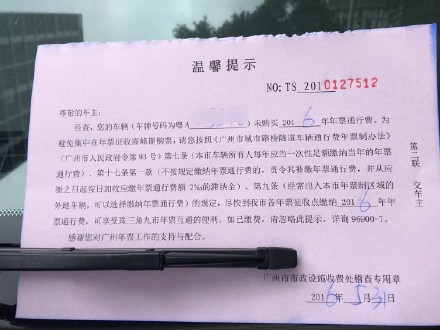 温馨提示
NO: TS 2010127512
尊敬的车主:
经查,您的车辆(车牌号码为粤A 未购买 2016年年票通行费,为
避免集中在年票征收高峰期购票,请您按照《广州市城市路桥隧道车辆通行费年票制办法》
(广州市人民政府令第 93 号)第七条(本市车辆所有人每年应当一次性足额缴纳当年的年票
通行费)、第十七条第一款(不按规定缴纳年票通行费的,责令其补缴年票通行费,并从应
缴之日起按日加收应缴年票通行费额 2‰的滞纳金)、第九条(经常出入本市年票制区域的
外地车辆,可以选择缴纳年票通行费)的规定,尽快到我市各年票征收点缴纳 2016年年
票通行费,可享受珠三角九市年票互通的便利。如已缴费,请忽略此提示,详询 96900-7。
感谢您对广州年票工作的支持与配合。
广州市市政设施收费处稽查专用章
2016年5月31日
第二联 交车主